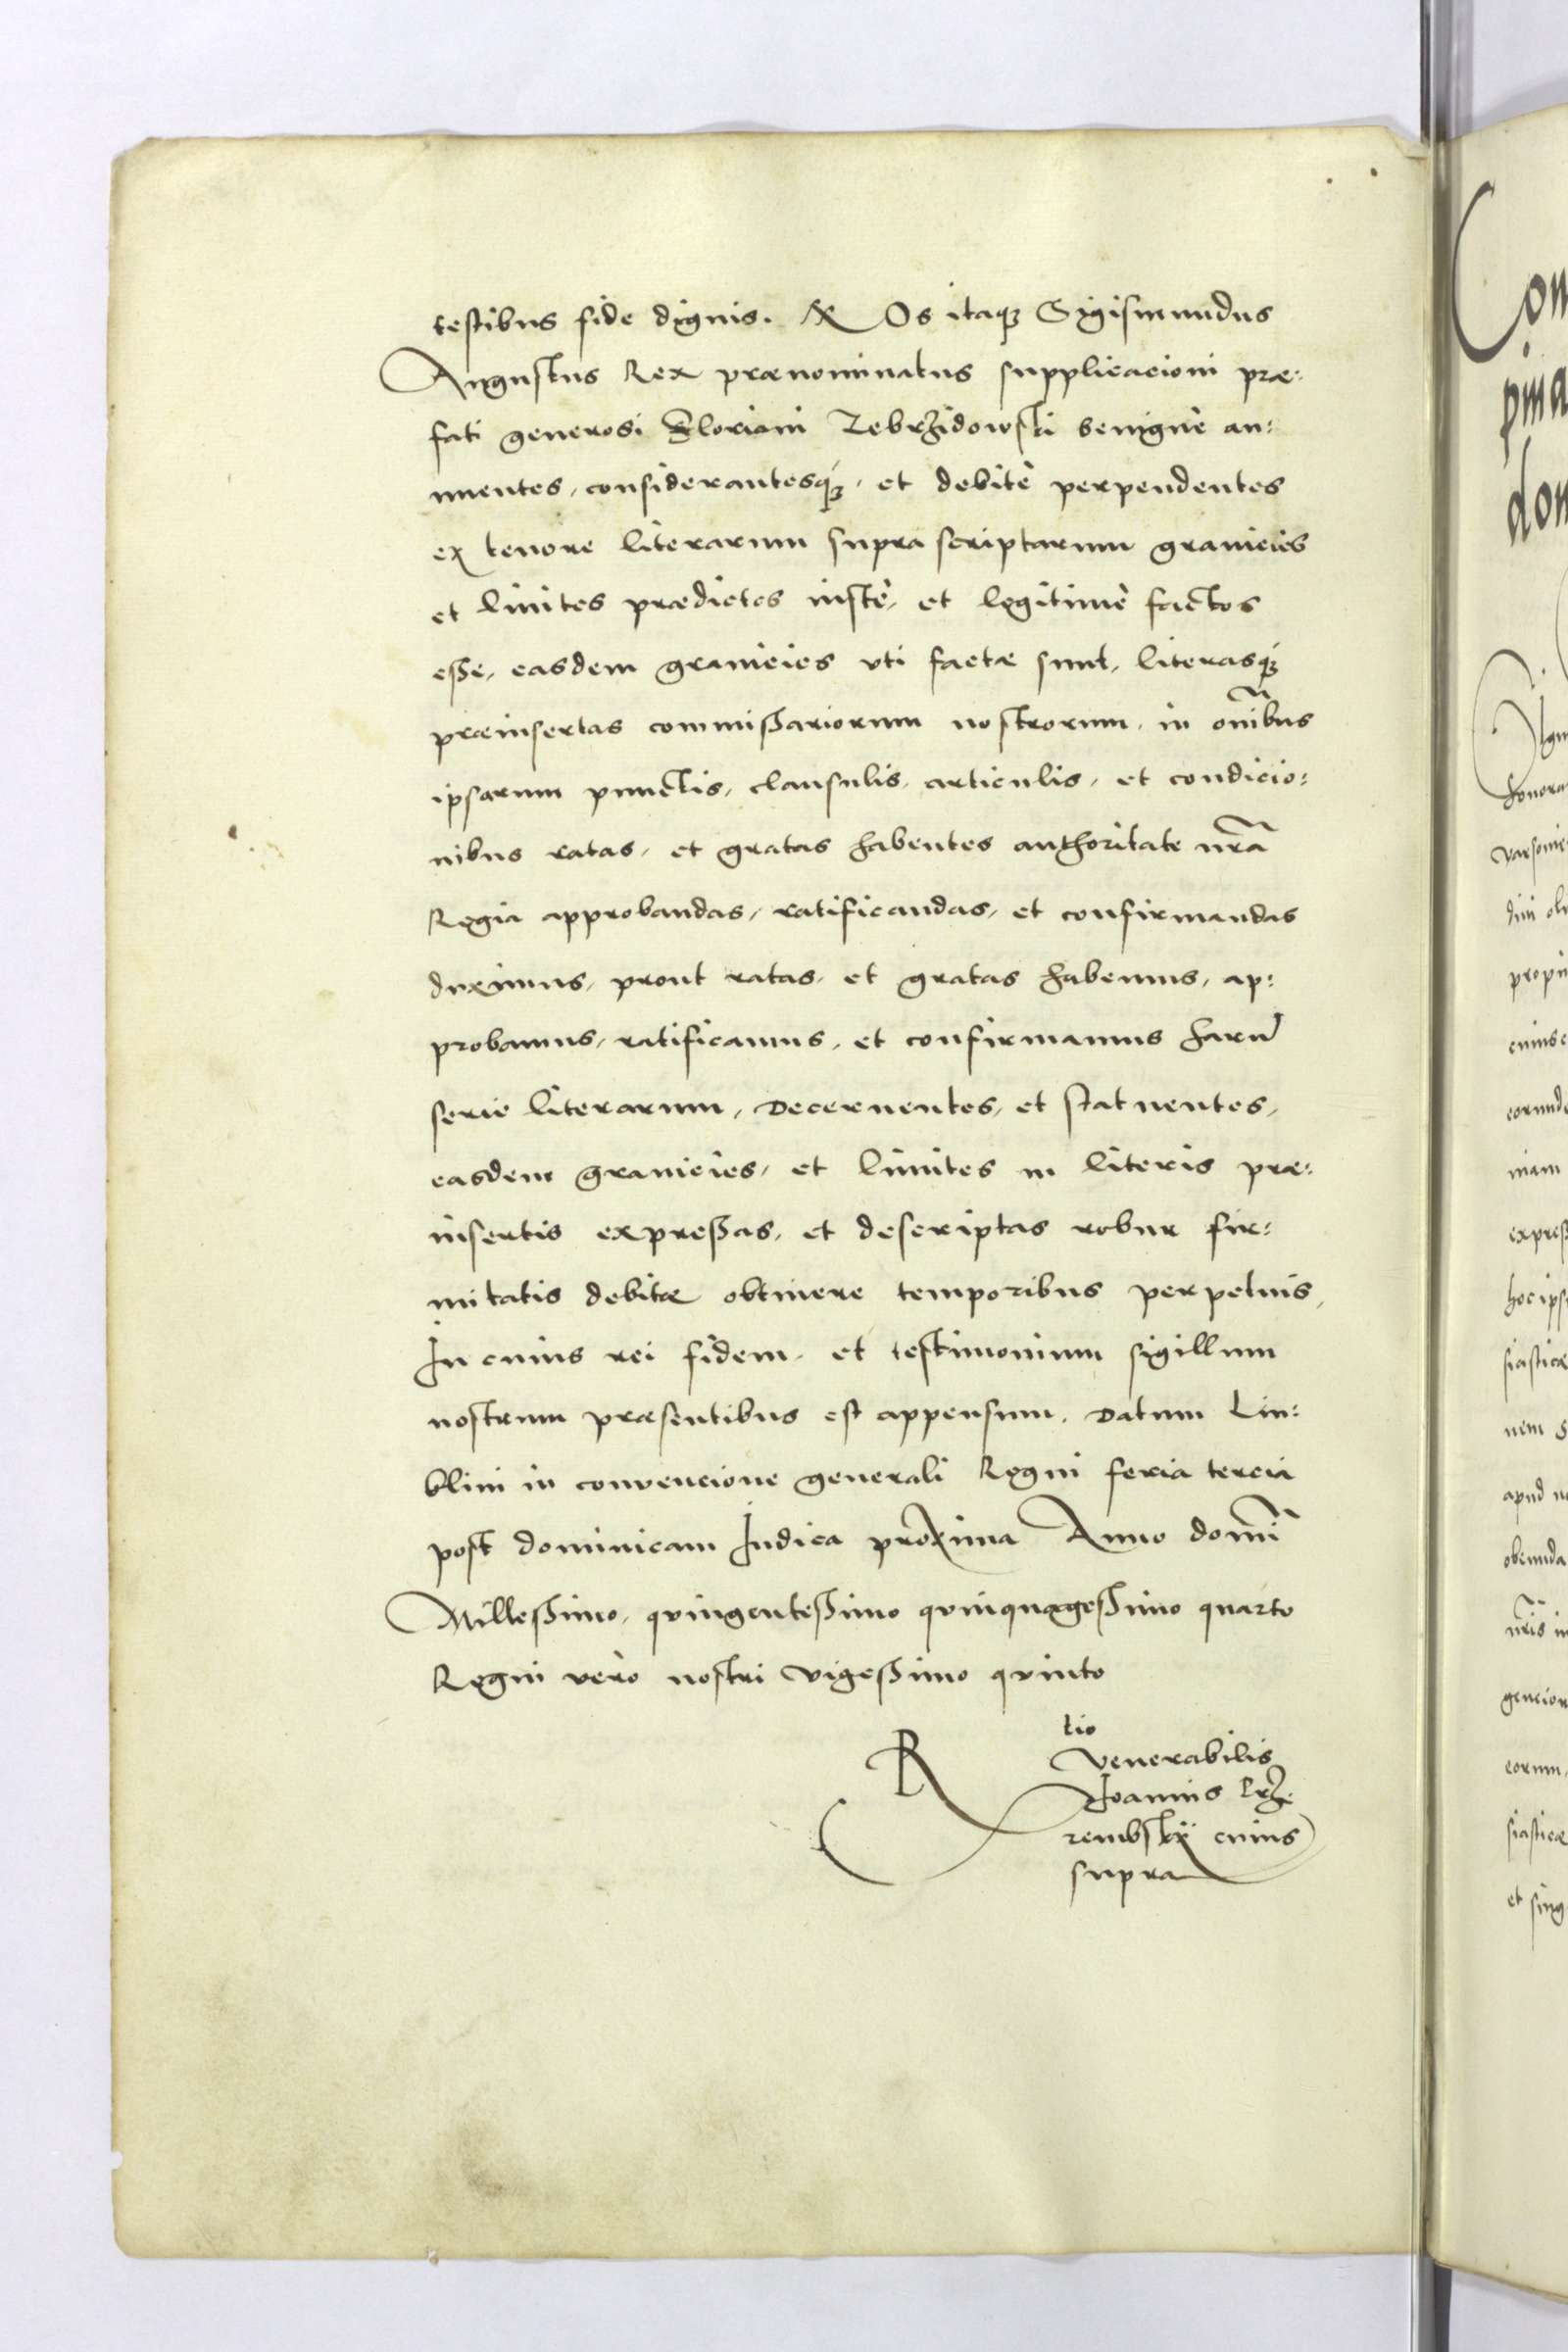 testibus fide dignis. NOs itaq́ꝫ Sigismundus
Augustus Rex prænominatus supplicacioni præ:
fati generosi Floriani Zebrzidowski benignè an:
nuentes, considerantesq́ꝫ, et debitè perpendentes
ex tenore literarum supra scriptarum granicies
et limites prædictos iustè, et legitimè factos
esse, easdem granicies vti factæ sunt, literasq́ꝫ
præinsertas commissariorum nostrorum, in om̃ibus
ipsarum punctis, clausulis, articulis, et condicio:
nibus ratas, et gratas habentes authoritate nr̃a
Regia approbandas, ratificandas, et confirmandas
duximus, prout ratas, et gratas habemus, ap:
probamus, ratificamus, et confirmamus harũ
serie literarum, Decernentes, et statuentes,
easdem granicies, et limites in literis præ:
insertis expressas, et descriptas robur fir:
mitatis debitæ obtinere temporibus perpetuis,
In cuius rei fidem, et testimonium sigillum
nostrum præsentibus est appensum. Datum Lu:
blini in convencione generali Regni feria tercia
post dominicam Iudica proxima Anno domĩ
Millessimo, quingentessimo quinquagessimo quarto
Regni vero nostri vigessimo quinto
R
tio
Venerabilis
Ioannis Prze
rembsky cuius
supra